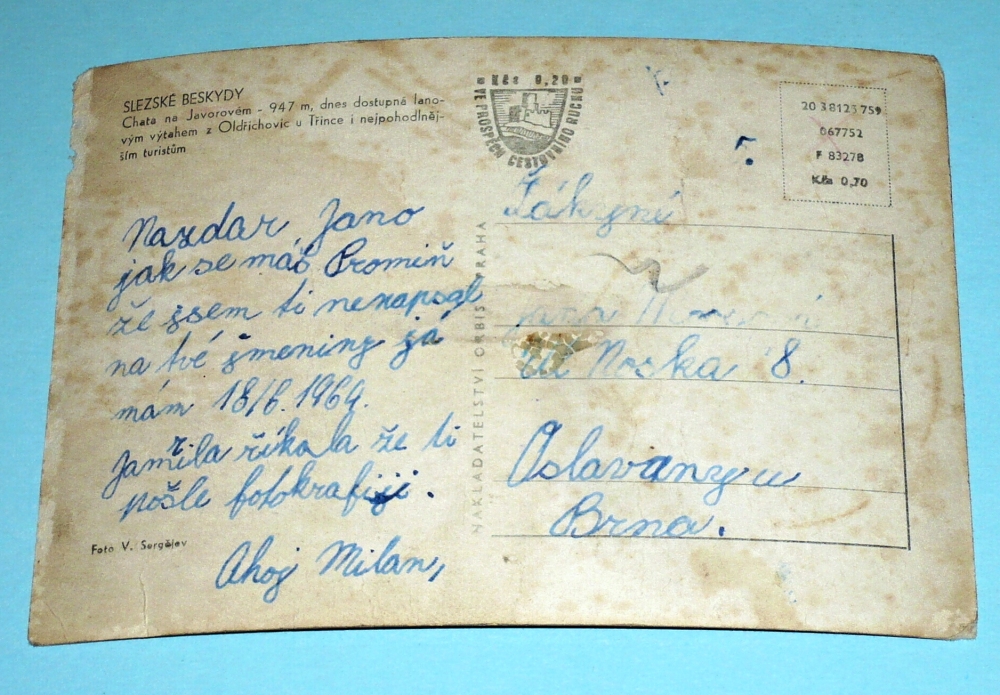 SLEZSKÉ BESKYDY
Chata na Javorovém - 947 m, dnes dostupná lano-
vým výtahem z Oldřichovic u Třince i nejpohodlněj-
ším turistům
Kčs 0,20
VE PROSPĚCH CESTOVNÍHO RUCHU
20 38125 759
067752
F 83278
Kčs 0,70
Nazdar Jano
jak se máš Promiň
že jsem ti nenapsal
na tvé jmeniny já
mám 18/6. 1964.
Jarmila říkala že ti
pošle fotokrafiji.
Ahoj Milan,
Foto V. Sergějev
NAKLADATELSTVÍ ORBIS PRAHA
Žákyně
Jana
Noska 8.
Oslavany u
Brna.